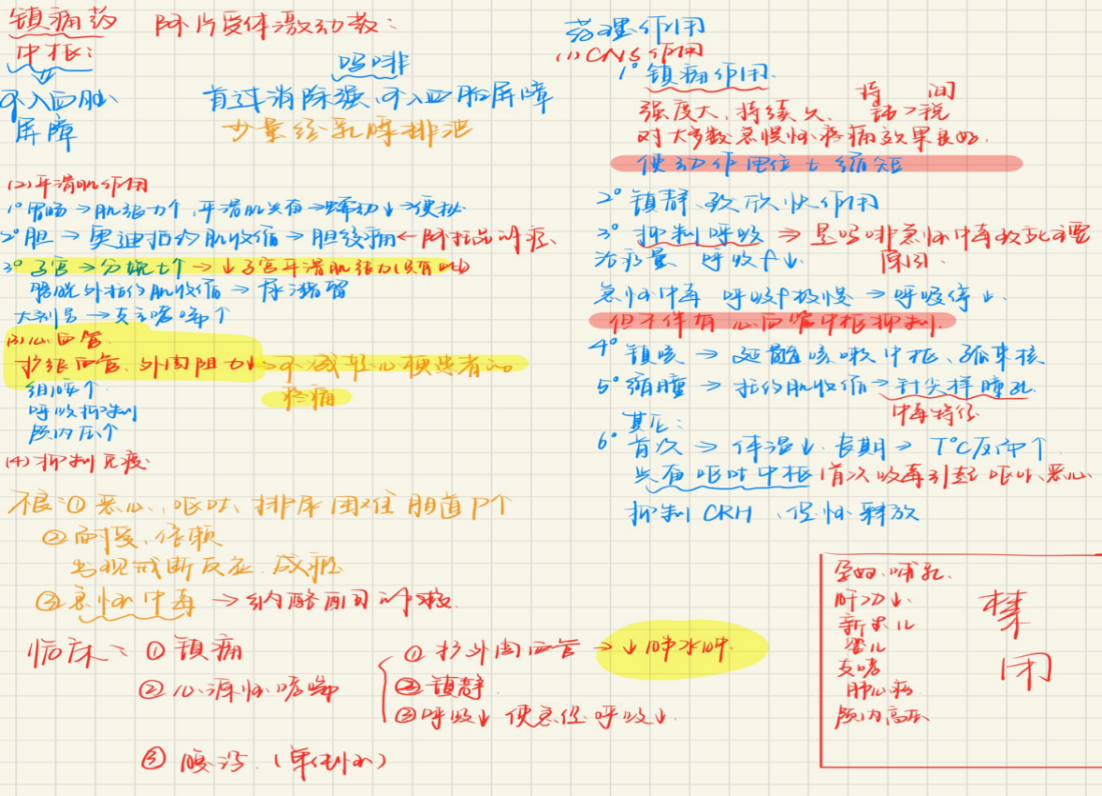 镇痛药 阿片受体激动药：
中枢：
吗啡
可入血脑屏障
首过消除强、可入血脑屏障
少量经乳腺排泄
药理作用
(1) CNS作用
1° 镇痛作用
强度大，持续久、持 钝＞锐 间
对大多数急慢性疼痛效果良好.
使动作电位t缩短
2° 镇静、致欣快作用
3° 抑制呼吸 → 是吗啡急性中毒致死主要原因.
治疗量 呼吸f↓.
急性中毒 呼吸f极慢 → 呼吸停止.
但不伴有心血管中枢抑制.
4° 镇咳 → 延髓咳嗽中枢、孤束核
5° 缩瞳 → 括约肌收缩 → 针尖样瞳孔
中毒特征
其它：
6° 首次 → 体温↓. 长期 → T℃反而↑
兴奋呕吐中枢 首次吸毒引起呕吐、恶心
抑制CRH、促性释放
(2) 平滑肌作用
1° 胃肠 → 肌张力↑, 平滑肌兴奋 → 蠕动↓ → 便秘
2° 胆 → 奥迪括约肌收缩 → 胆绞痛 ← 阿托品
3° 子宫 → 分娩t↑ → ↓子宫平滑肌张力
膀胱外括约肌收缩 → 尿潴留
大剂量 → 支气哮喘↑
(3) 心血管
扩张血管、外周阻力↓ → 可减轻心梗患者的疼痛
组胺↑
呼吸抑制
颅内压↑
(4) 抑制免疫.
不良：① 恶心、呕吐、排尿困难 胆道P↑
② 耐受、依赖
出现戒断反应. 成瘾
③ 急性中毒 → 纳酪酮
临床：① 镇痛
② 心源性哮喘
① 扩外周血管 → ↓肺水肿
② 镇静.
③ 呼吸↓ 使急促呼吸↓.
③ 腹泻.
孕妇、哺乳.
肝功↓.
新生儿
婴儿
支哮
肺心病
颅内高压
禁
闭